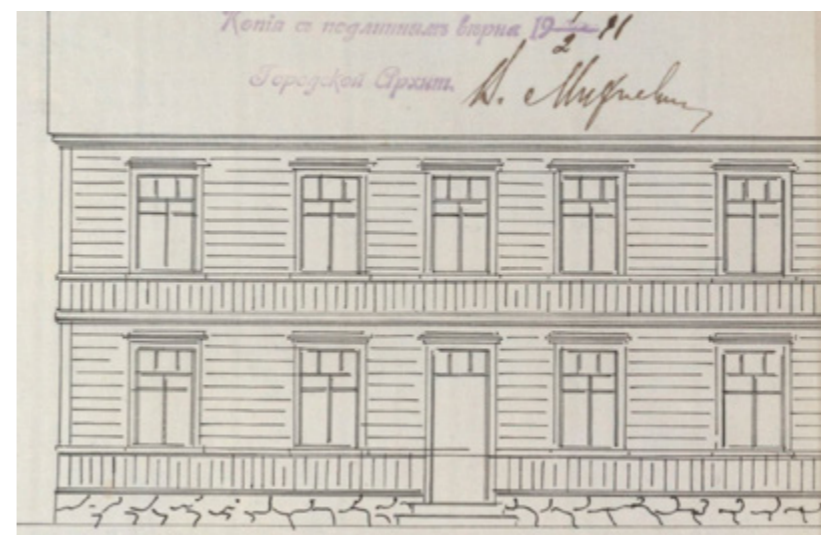 Копія съ подлиннымъ вѣрна 19 1/2 11
Городской Архит.